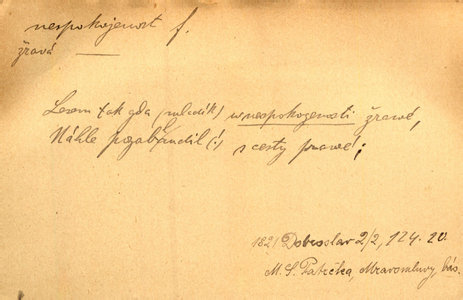 nespokojenost f.
žravá
Lesem tak gda (mladík) w nespokogenosti žrawé,
Náhle pozabłaudil (:) s cesty prawé;
1821 Dobroslav 2/2, 124. 20.
M. S. Patrčka, Mravomluvy, bás.